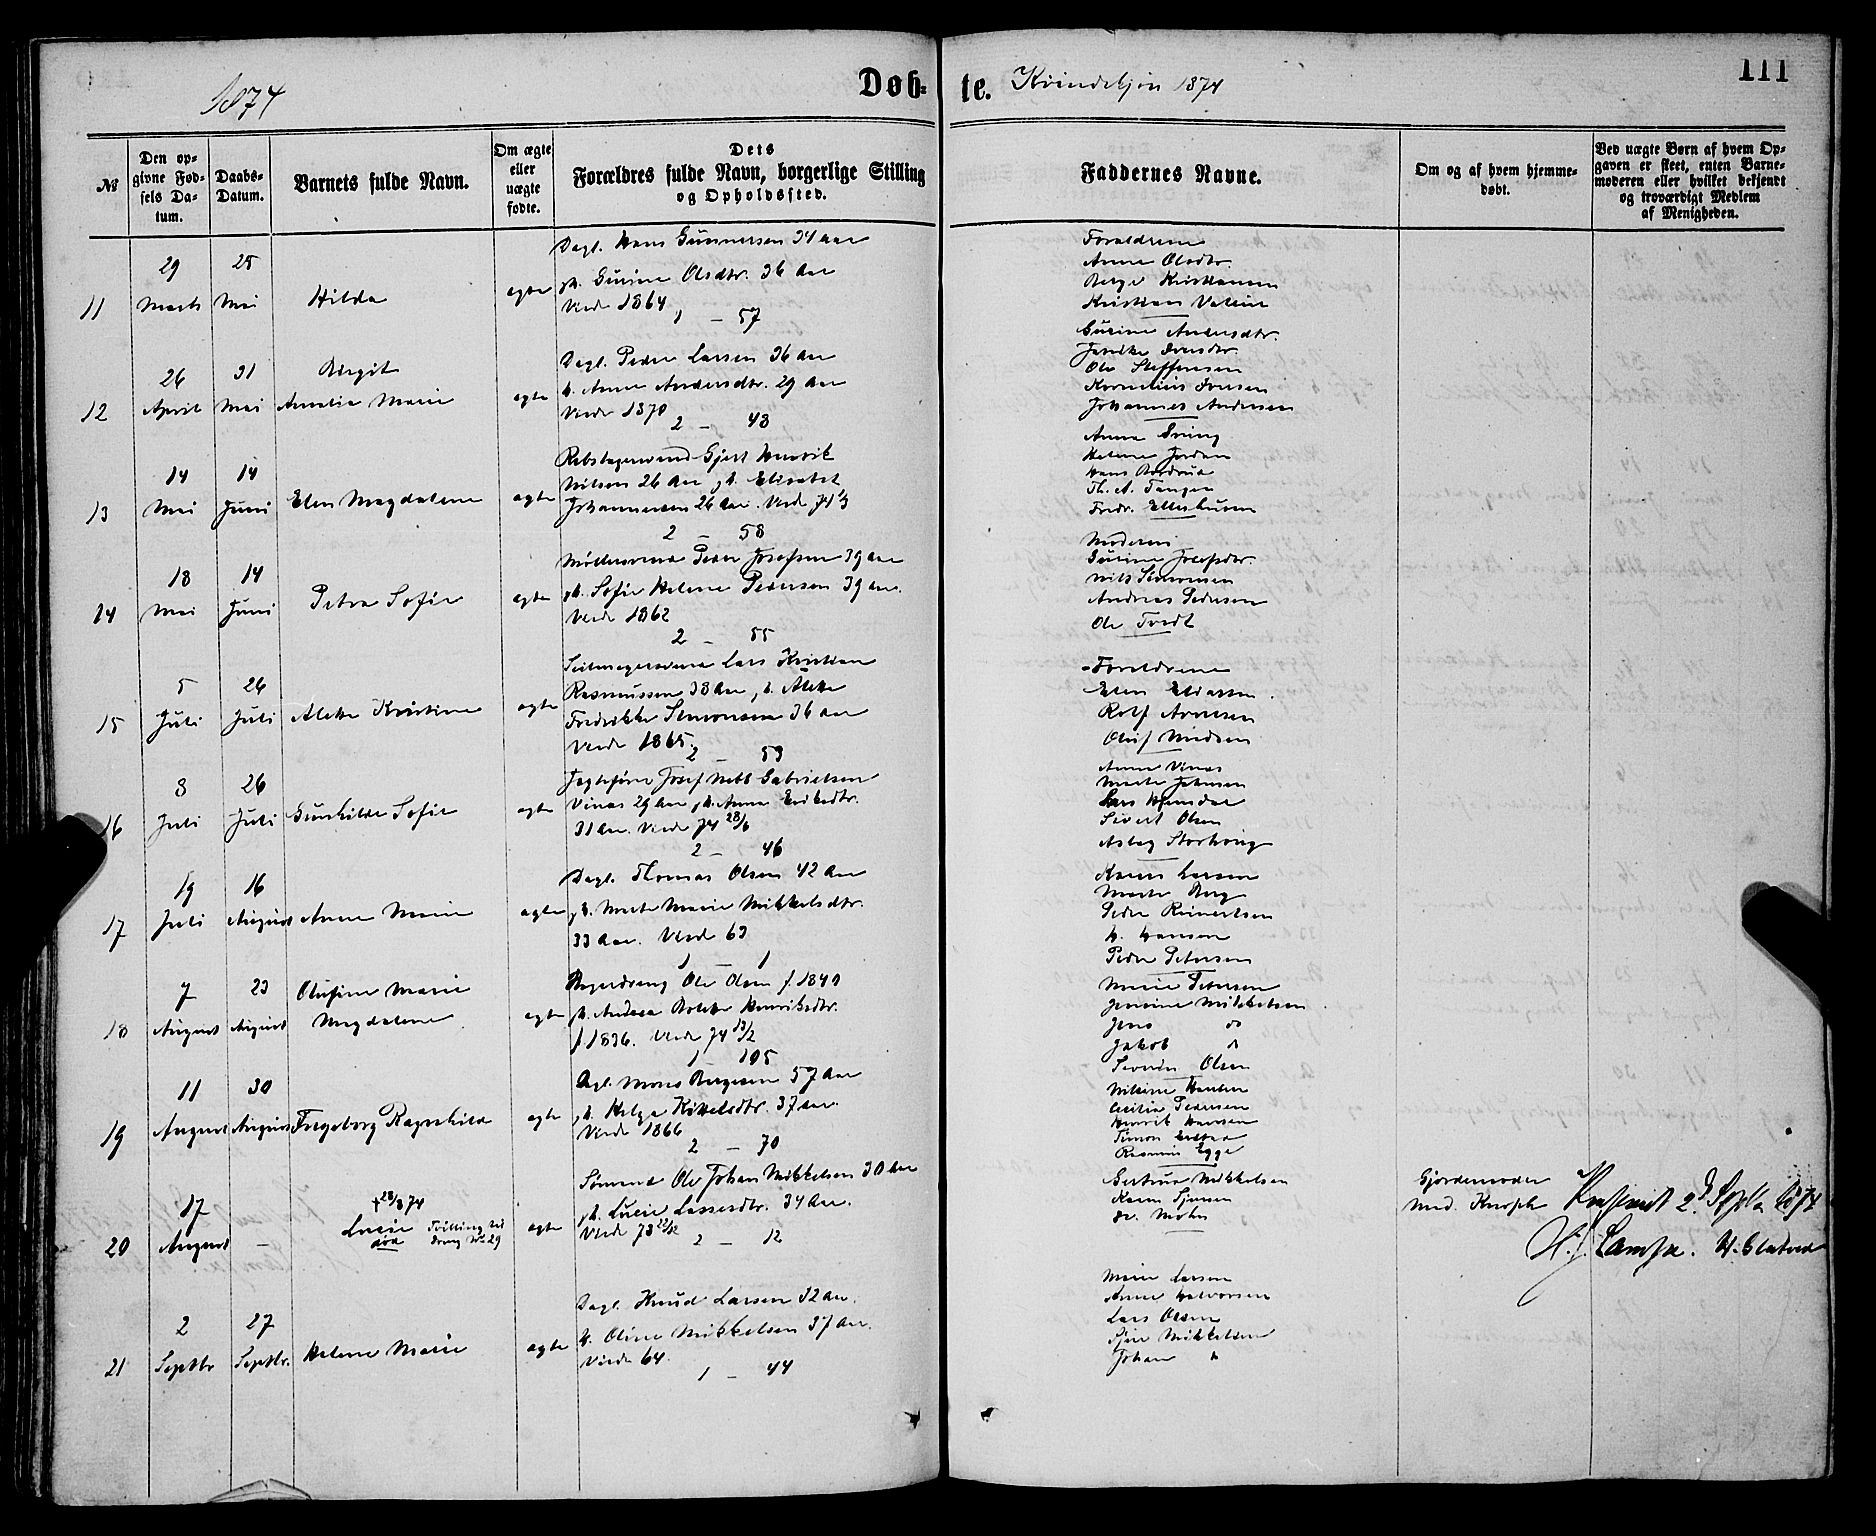 1874
Døb-
te.
Kvindekjøn 1874
111
№
Den opgivne Fødsels Datum.
Daabs-Datum.
Barnets fulde Navn.
Om ægte eller uægte fødte.
Dets
Forældres fulde Navn, borgerlige Stilling
og Opholdssted.
Faddernes Navne.
Om og af hvem hjemmedøbt.
Ved uægte Børn af hvem Opgaven er skeet, enten Barnemoderen eller hvilket bekjendt og troværdigt Medlem af Menigheden.
11
29 Marts
25 Mai
Hilda
ægte
Dagl. Hans Gunnersen 34 Aar
Gurine Olsdtr. 36 Aar
Viede 1864
1 — 57
Forældrene
Anna Olsdtr.
Berge Kristiansen
Kristian
12
26 April
31 Mai
Birgit
Amalia Marie
ægte
Dagl. Peder Larsen 36 Aar
h. Anne Andersdtr. 29 Aar
Viede 1870
2 — 48
Gurine Andersdtr.
Iversdtr.
Ole Steffensen
Kornelius Iversen
Johannes Andersen
13
14 Mai
14 Juni
Elen Magdalene
ægte
Gjert Henrik
Nilsen 26 Aar Elisabet
Johannesen 26 Aar. Viede 71
2 — 58
Anna
Helene Jordan
Hans
Th. A. Tangen
Fredr. Ellerhusen
14
18 Mai
14 Juni
Petra Sofie
ægte
Peder Josefsen 39 Aar
Sofie Helene Pedersen 39 Aar.
Viede 1862
2 — 55
Moderen
Gurine Josefsdtr.
Nils Simonsen
Andreas Pedersen
Ole Tvedt
15
5 Juli
26 Juli
Aletta Kristine
ægte
Lars Kristian
Rasmussen 38 Aar
Fredrikke Simonsen 36 Aar
Viede 1865.
2 — 53
Forældrene
Elen Eliassen
Rolf Arnesen
Oluf Madsen
16
8 Juli
26 Juli
Gunhilde Sofie
ægte
Josef Gabrielsen
Vinas 29 Aar Anna Eriksdtr.
31 Aar. Viede 74 28/6
2 — 46
Anna Vinas
Marte Johnsen
Lars
Sivert Olsen
17
19 Juli
16 August
Anne Marie
ægte
Dagl. Thomas Olsen 42 Aar
Marte Marie Mikkelsdtr.
33 Aar. Viede 63
1 — 1
Karen Larsen
Marte Berg
Peder Reinertsen
H. Hansen
Peder Petersen
18
7 August
23 August
Olufine Marie
Magdalene
ægte
Ole Olsen f. 1840
Andrea Henriksdtr.
f. 1836. Viede 74 13/2
1 — 105
Marie Petersen
Jensine Mikkelsen
Jens do
Jakob do
Severin Olsen
19
11 August
30 August
Ingeborg Ragnhilde
ægte
Dagl. Mons Børgesen 57 Aar
Helga Kittelsdtr. 37 Aar.
Viede 1866
2 — 70
Nilsine
Cecilia Pedersen
Henrik Hansen
Simon
Rasmus Egge
20
17 August
—
† 28/8 74
Lucie
død
Tvilling til
Dreng No 29
ægte
Sømand Ole Johan Mikkelsen 30 Aar
Lucie Lassesdtr. 34 Aar.
Viede 73 22/12
2 — 12
Gertrud Mikkelsen
Karen
Fr. Mohn
Gjordemoder
Mad. Knoph
Krstsand 2d Septbr 1874
H. J. Lampe.
21
2 Septbr
27 Septbr.
Helene Marie
ægte
Dagl. Knud Larsen 32 Aar.
h. Oline Mikkelsen 37 Aar.
Viede 64.
1 — 44
Marie Larsen
Anne Halvorsen
Lars Olsen
Mikkelsen
Johan